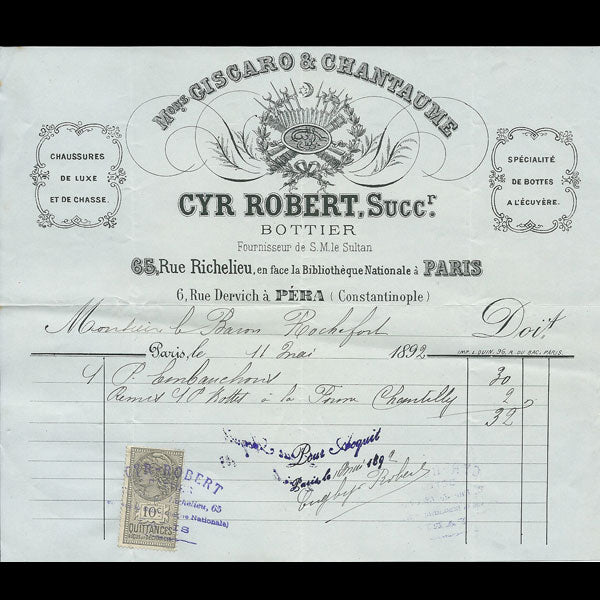 Mons GISCARO & CHANTAUME
CHAUSSURES
DE LUXE
ET DE CHASSE.
SPÉCIALITÉ
DE BOTTES
A L'ÉCUYÈRE.
CYR ROBERT, SUCCr.
BOTTIER
Fournisseur de S.M. le Sultan
65, Rue Richelieu, en face la Bibliothèque Nationale à PARIS
6, Rue Dervich à PÉRA (Constantinople)
Monsieur le Baron Rochefort Doit
Paris, le 11 Mai 1892
IMP. L. OUIN. 36, R. DU BAC, PARIS.
4 P. Embauchoirs 30
Remis à la Forme Chantilly 2
32
Pour Acquit
Paris, le mai 1892
Robert
CYR ROBERT
Richelieu, 65
Nationale)
PARIS
10c
QUITTANCES